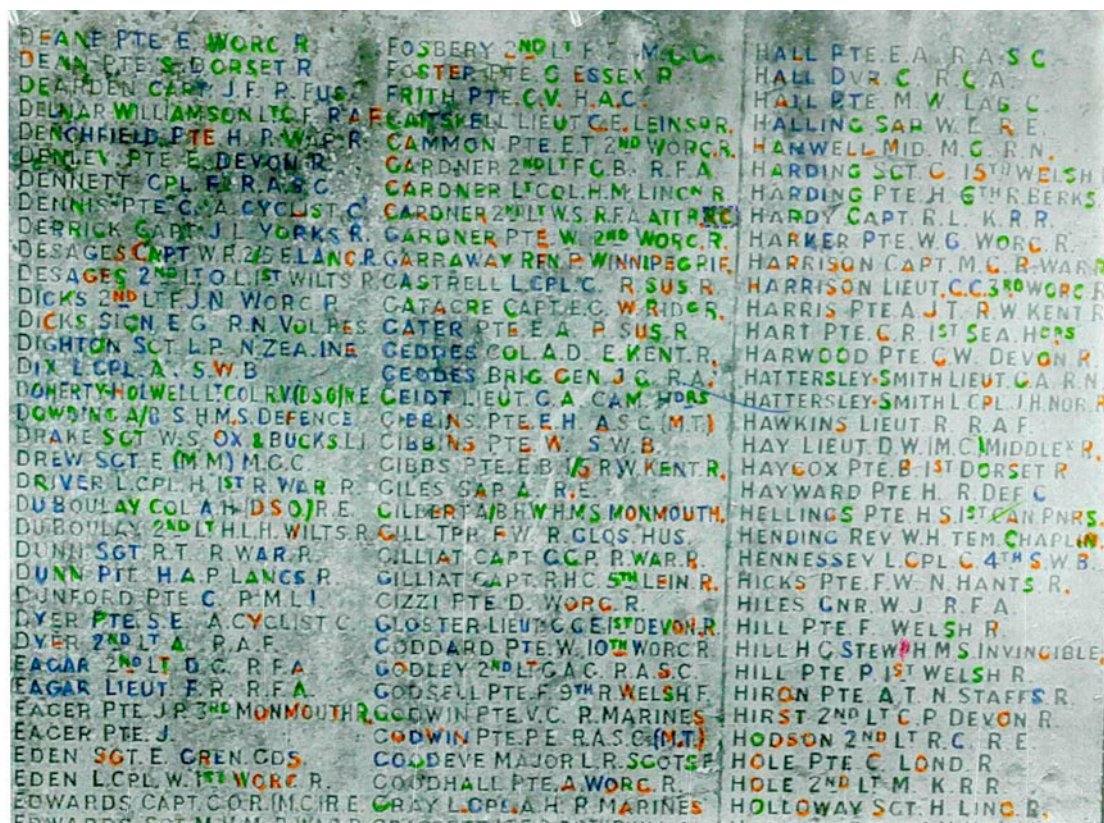 DEANE PTE. E. WORC. R.
DENN PTE. S. DORSET R.
DEARDEN CAPT. J.F. R. FUS.
DELMAR WILLIAMSON LT G.F. R.A.F.
DENCHFIELD PTE H. R. WAR. R.
DENLEY PTE. E. DEVON R.
DENNETT CPL. F. R.A.S.C.
DENNIS PTE. G. A. CYCLIST. C.
DERRICK CAPT. J.L. YORKS R.
DESAGES CAPT W.R. 2/5 E. LANC. R.
DESAGES 2ND LT O.L. 1ST WILTS R.
DICKS 2ND LT F.J.N. WORC. R.
DICKS SIGN. E.G. R.N. VOL. RES
DIGHTON SGT. L.P. N. ZEA. INF.
DIX L.CPL. A. S.W.B.
DOHERTY-HOLWELL LT COL R.V. (DSO) R.E.
DOWDING A/B S. H.M.S. DEFENCE
DRAKE SGT W.S. OX & BUCKS L.I.
DREW SGT. E. (M.M) M.G.C.
DRIVER L.CPL. H. 1ST R. WAR. R.
DU BOULAY COL A.H. (DSO) R.E.
DU BOULAY 2ND LT H.L.H. WILTS R.
DUNN SGT R.T. R. WAR. R.
DUNN PTE H.A.P. LANCS. R.
DUNFORD PTE G. R.M.L.I.
DYER PTE. S.E. A. CYCLIST C.
DYER 2ND LT A. R.A.F.
EAGAR 2ND LT D.G. R.F.A.
EAGAR LIEUT. F.R. R.F.A.
EAGER PTE J.P. 3RD MONMOUTH R.
EAGER PTE. J.
EDEN SGT. E. GREN. GDS.
EDEN L.CPL. W. 1ST WORC. R.
EDWARDS CAPT. C.O.R. (M.C.) R.E.
FOSBERY 2ND LT F.T. M.G.C.
FOSTER PTE. G. ESSEX R.
FRITH PTE. C.V. H.A.C.
GAITSKELL LIEUT. C.E. LEINS R.
GAMMON PTE. E.T. 2ND WORC. R.
GARDNER 2ND LT F.C.B. R.F.A.
GARDNER LT COL. H.M. LINCN R.
GARDNER 2ND LT W.S. R.F.A. ATT. R.F.C.
GARDNER PTE. W. 2ND WORC. R.
GARRAWAY RFN. P. WINNIPEG RIF.
GASTRELL L.CPL. C. R. SUS. R.
GATACRE CAPT. E.G. W. RIDG R.
GATER PTE. E.A. R. SUS. R.
GEDDES COL. A.D. E. KENT. R.
GEDDES BRIG. GEN. J.G. R.A.
GEIDT LIEUT. G.A. CAM. HDRS
GIBBINS PTE. E.H. A.S.C. (M.T.)
GIBBINS PTE. W. S.W.B.
GIBBS PTE. E.B. 1/5 R.W. KENT. R.
GILES SAP. A. R.E.
GILBERT A/B H.W. H.M.S MONMOUTH.
GILL TPR. F.W. R. GLOS. HUS.
GILLIAT CAPT. C.G.P. R. WAR. R.
GILLIAT CAPT. R.H.C. 5TH LEIN. R.
GIZZI PTE. D. WORC. R.
GLOSTER LIEUT. G.C.E. 1ST DEVON. R
GODDARD PTE. W. 10TH WORC. R.
GODLEY 2ND LT G.A.C. R.A.S.C.
GODSELL PTE. F. 9TH R. WELSH F.
GODWIN PTE. V.C. R. MARINES
GODWIN PTE. P.E. R.A.S.C. (M.T.)
GOODEVE MAJOR L.R. SCOTS F
GOODHALL PTE. A. WORC. R.
GRAY L.CPL. A.H. R. MARINES
HALL PTE. E.A. R.A.S.C
HALL DVR. C. R.G.A.
HALL PTE. M.W. LAB C.
HALLING SAP. W.E. R.E.
HAMWELL MID. M.G. R.N.
HARDING SGT. C. 15TH WELSH
HARDING PTE. H. 6TH R. BERKS.
HARDY CAPT. R.L. K.R.R.
HARKER PTE. W.G. WORC. R.
HARRISON CAPT. M.C. R. WAR R
HARRISON LIEUT. C.C. 3RD WORC R
HARRIS PTE. A.J.T. R.W. KENT R
HART PTE. C.R. 1ST SEA. HDRS
HARWOOD PTE. G.W. DEVON R.
HATTERSLEY-SMITH LIEUT. G.A. R.N.
HATTERSLEY-SMITH L.CPL. J.H. NOR. R
HAWKINS LIEUT. R. R.A.F.
HAY LIEUT. D.W. (M.C.) MIDDLEX R.
HAYCOX PTE. B. 1ST DORSET R
HAYWARD PTE. H. R. DEF C
HELLINGS PTE. H.S. 1ST CAN. PNRS.
HENDING REV. W.H. TEM. CHAPLIN.
HENNESSEY L.CPL. C. 4TH S.W.B.
HICKS PTE. F.W. N. HANTS. R.
HILES GNR. W.J. R.F.A.
HILL PTE. F. WELSH R.
HILL H G STEWD H.M.S. INVINCIBLE.
HILL PTE P. 1ST WELSH R.
HIRON PTE A.T. N. STAFFS R
HIRST 2ND LT C.P. DEVON R.
HODSON 2ND LT R.C. R.E.
HOLE PTE C. LOND. R.
HOLE 2ND LT M. K.R.R
HOLLOWAY SGT. H. LINC. R.